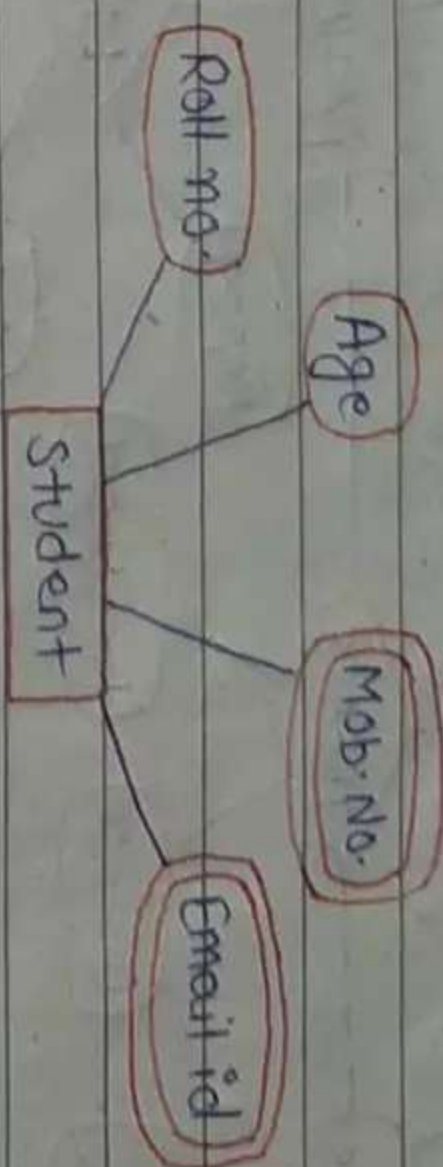 Roll no.
Age
Mob. No.
Email id
Student